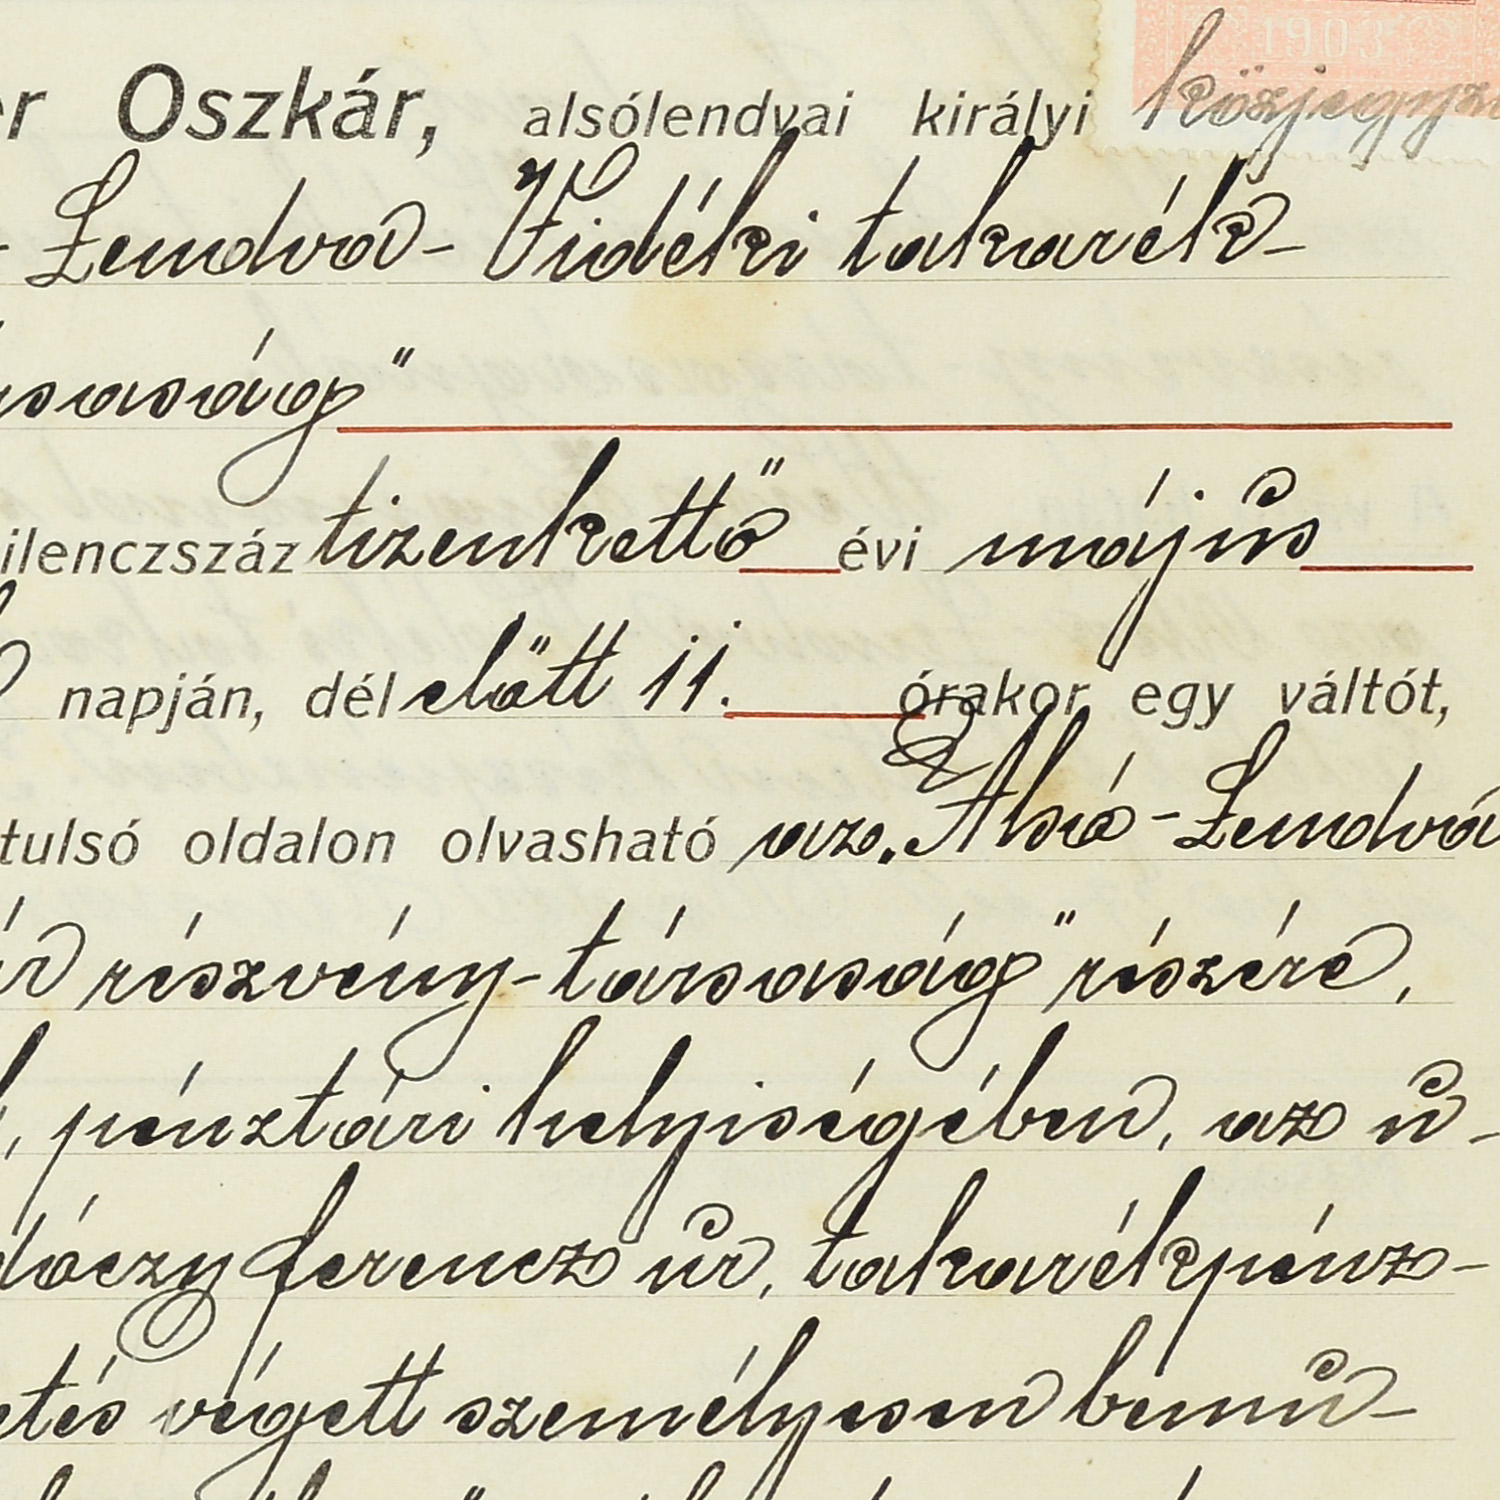 1903
er Oszkár, alsólendvai királyi közjegyző
- Lendva- Vidéki takarék-
saság"
ilenczszáz tizenkettő évi május
napján, dél előtt 11. órakor egy váltót,
tulsó oldalon olvasható az „Alsó-Lendva
részvény-társaság" részére,
, pénztári helyiségében, az u-
dóczy Ferencz úr, takarékpénz-
etés végett személyesen bemu-